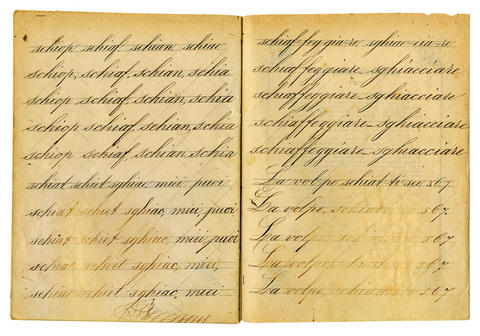 schiop schiaf schian schiac
schiop, schiaf, schian, schia
schiop schiaf, schian, schia
schiop schiaf, schian, schia
schiop schiaf, schian, schia
schiat schiet sghiac mici puoi
schiat schiet sghiac, mici, puoi
schiat schiet, sghiac, mici puoi
schiat schiet sghiac, mici,
schiac schiet sghiac, mici
schiaffeggiare sghiacciare
schiaffeggiare sghiacciare
schiaffeggiare sghiacciare
schiaffeggiare sghiacciare
schiaffeggiare sghiacciare
La volpe schiat 567
La volpe, 567
La volp 567
La volpe 567
La volpe, 567